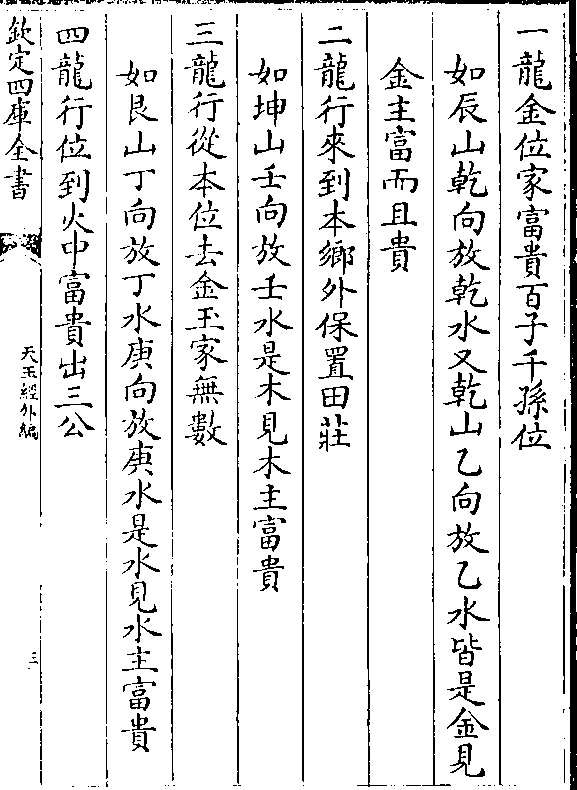 一龍金位家富貴百子千孫位
如辰山乾向放乾水又乾山乙向放乙水皆是金見
金主富而且貴
二龍行來到本鄉外保置田莊
如坤山壬向放壬水是木見木主富貴
三龍行從本位去金玉家無數
如艮山丁向放丁水庚向放庚水是水見水主富貴
四龍行位到火中富貴出三公
欽定四庫全書
天玉經外編
三